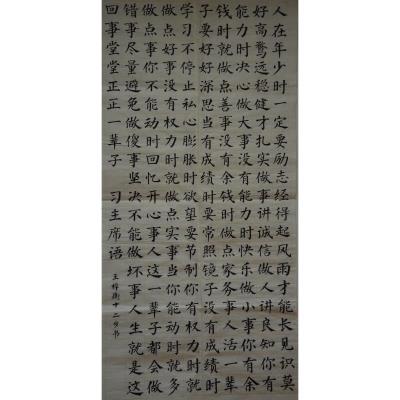 人在年少时一定要励志经得起风雨才能长见识莫
好高骛远稳健才扎实做事讲诚信做人讲良知你有
能力时决心做大事没有能力时快乐做小事你有余
钱时就做点善事没有余钱时做点家务事人活一辈
子要好好深思当有成绩时要常照镜子没有成绩时
学习不停止私心膨胀时欲望要节制你有权力时就
做点好事没有权力时就做点实事当你能动时就多
做点事你不能动时回忆开心事人这一辈子都会做
错事尽量避免做傻事坚决不能做坏事人生就是这
回事堂堂正正一辈子 习主席语
王 十二岁书